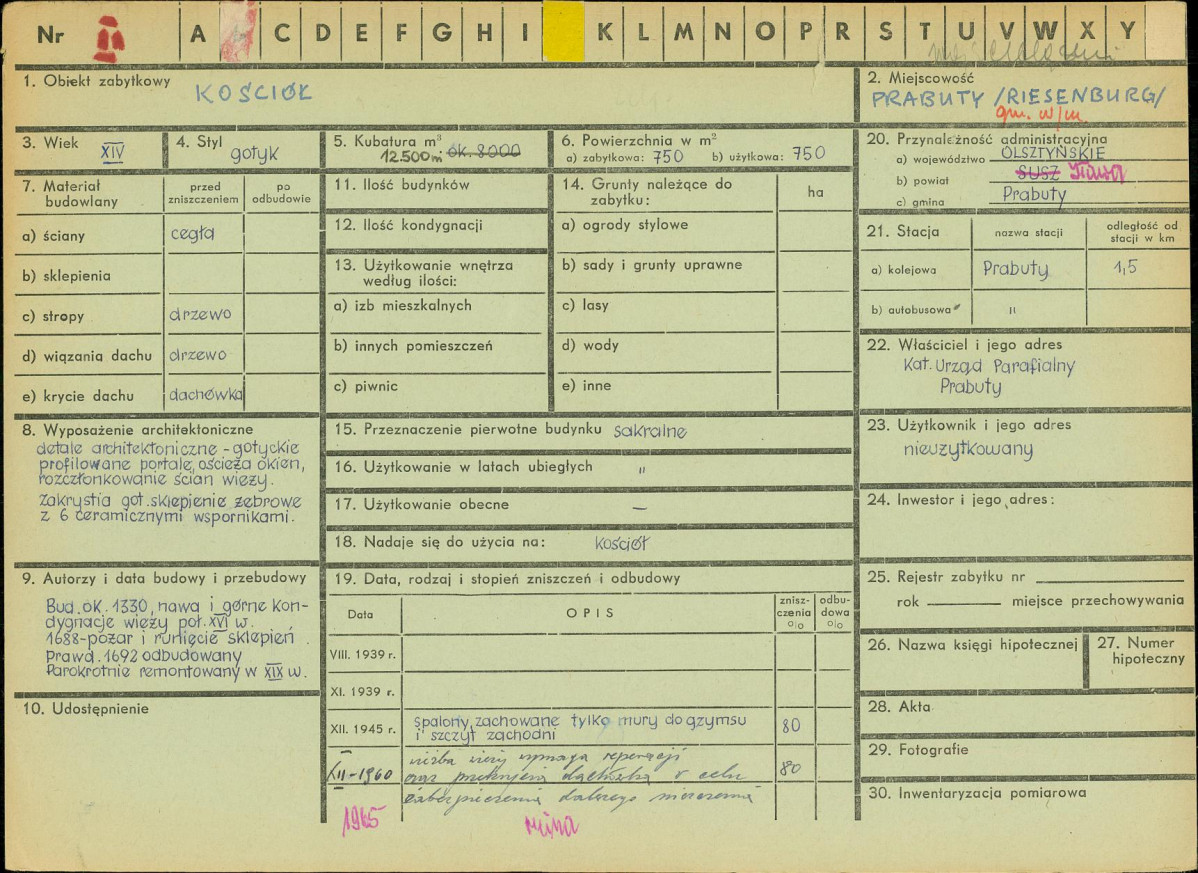 Nr A C D E F G H I K L M N O P R S T U V W X Y
1. Obiekt zabytkowy KOŚCIÓŁ
2. Miejscowość
PRABUTY /RIESENBURG/
gm. w/m.
3. Wiek XIV
4. Styl gotyk
5. Kubatura m³
12.500 m³ ok. 8000
6. Powierzchnia w m²
a) zabytkowa: 750 b) użytkowa: 750
20. Przynależność administracyjna
a) województwo OLSZTYŃSKIE
b) powiat SUSZ Iława
c) gmina Prabuty
7. Materiał budowlany
przed zniszczeniem
po odbudowie
a) ściany cegła
b) sklepienia
c) stropy drzewo
d) wiązania dachu drzewo
e) krycie dachu dachówka
11. Ilość budynków
12. Ilość kondygnacji
13. Użytkowanie wnętrza
według ilości:
a) izb mieszkalnych
b) innych pomieszczeń
c) piwnic
14. Grunty należące do
zabytku:
ha
a) ogrody stylowe
b) sady i grunty uprawne
c) lasy
d) wody
e) inne
21. Stacja
nazwa stacji
odległość od
stacji w km
a) kolejowa Prabuty 1,5
b) autobusowa "
22. Właściciel i jego adres
Kat. Urząd Parafialny
Prabuty
8. Wyposażenie architektoniczne
detale architektoniczne - gotyckie
profilowane portale, ościeża okien,
rozczłonkowanie ścian wieży.
Zakrystia got. sklepienie żebrowe
z 6 ceramicznymi wspornikami.
15. Przeznaczenie pierwotne budynku sakralne
16. Użytkowanie w latach ubiegłych "
17. Użytkowanie obecne —
18. Nadaje się do użycia na: kościół
23. Użytkownik i jego adres
nieużytkowany
24. Inwestor i jego adres:
9. Autorzy i data budowy i przebudowy
Bud. ok. 1330, nawa i górne kon-
dygnacje wieży poł. XVI w.
1688-pożar i runięcie sklepień.
Prawd. 1692 odbudowany
Parokrotnie remontowany w XIX w.
10. Udostępnienie
19. Data, rodzaj i stopień zniszczeń i odbudowy
Data
OPIS
znisz-
czenia
o/o
odbu-
dowa
o/o
VIII. 1939 r.
XI. 1939 r.
XII. 1945 r. Spalony, zachowane tylko mury do gzymsu
i szczyt zachodni 80
XII-1960 więźba wieży wymaga reperacji
oraz przekrycia dachówką w celu 80
zabezpieczenia dalszego niszczenia
1965 ruina
25. Rejestr zabytku nr
rok miejsce przechowywania
26. Nazwa księgi hipotecznej
27. Numer
hipoteczny
28. Akta
29. Fotografie
30. Inwentaryzacja pomiarowa